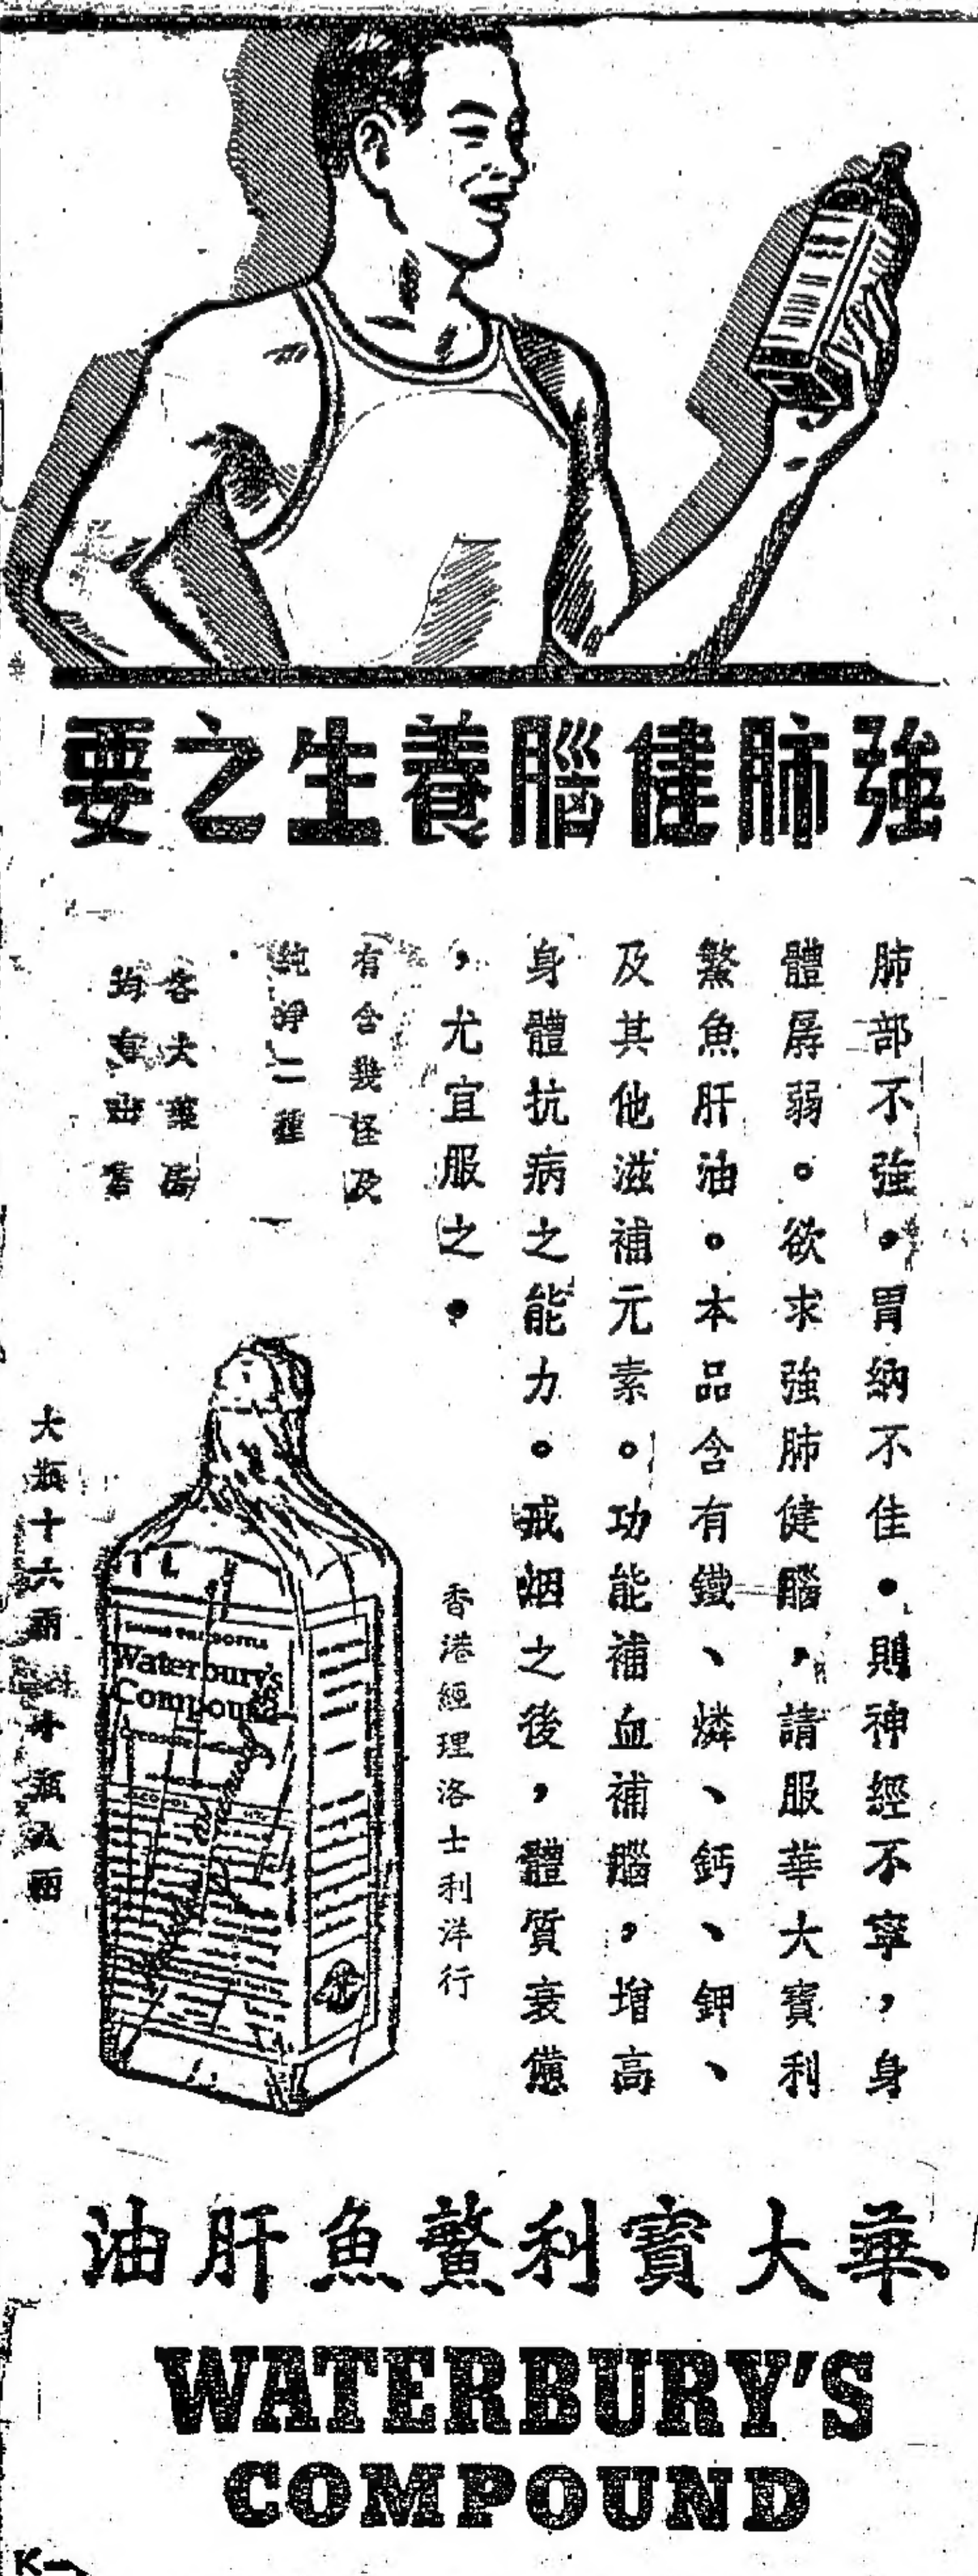 強肺健腦養生之要
肺部不強。胃納不佳。則神經不寧,身
體孱弱。欲求強肺健腦,請服華大寶利
鰵魚肝油。本品含有鐵、燐、鈣、鉀、
及其他滋補元素。功能補血補腦,增高
身體抗病之能力。戒烟之後,體質衰憊
,尤宜服之。
有含幾怪及
純淨二種
各大藥房
均有出售
香港經理洛士利洋行
大瓶十六兩
瓶八兩
Waterbury's
Compound
華大寶利鰵魚肝油
WATERBURY'S
COMPOUND
K